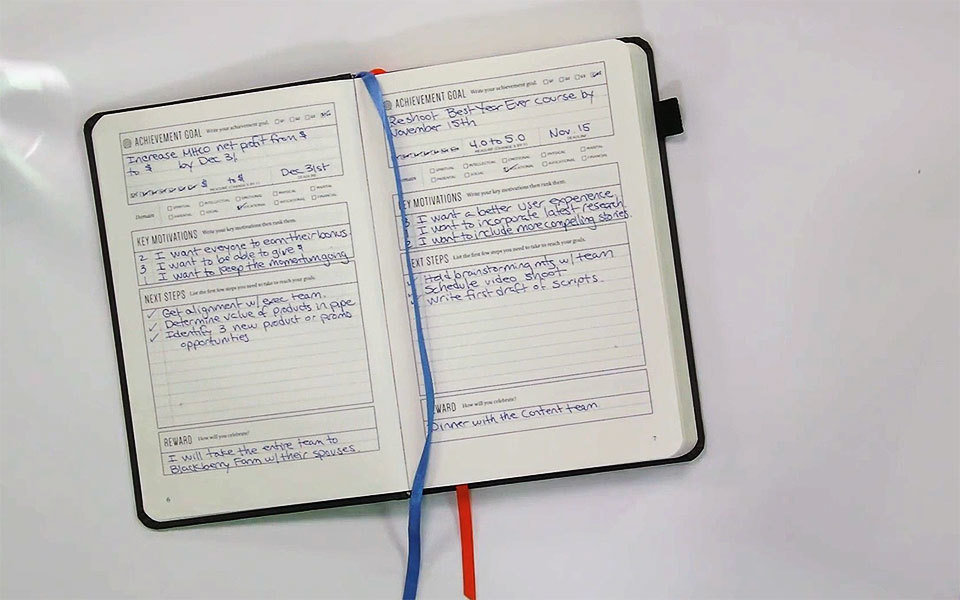 ACHIEVEMENT GOAL Write your achievement goal.
Increase MHCO net profit from $
to $ by Dec 31
$ to $ Dec 31st
DEADLINE
Domain SPIRITUAL INTELLECTUAL EMOTIONAL PHYSICAL MARITAL
PARENTAL SOCIAL VOCATIONAL AVOCATIONAL FINANCIAL
KEY MOTIVATIONS Write your key motivations then rank them.
2 I want everyone to earn their bonus
3 I want to be able to give $
1 I want to keep the momentum going
NEXT STEPS List the first few steps you need to take to reach your goals.
✓ Get alignment w/ exec team.
✓ Determine value of products in pipe
✓ Identify 3 new product or promo
opportunities
REWARD How will you celebrate?
I will take the entire team to
Blackberry Farm w/ their spouses.
6
ACHIEVEMENT GOAL Write your achievement goal.
Reshoot Best Year Ever course by
November 15th
4.0 to 5.0 Nov. 15
DEADLINE
SPIRITUAL INTELLECTUAL EMOTIONAL PHYSICAL MARITAL
PARENTAL SOCIAL VOCATIONAL AVOCATIONAL FINANCIAL
KEY MOTIVATIONS Write your key motivations then rank them.
I want a better user experience
I want to incorporate latest research
I want to include more compelling stories.
NEXT STEPS List the first few steps you need to take to reach your goals.
Hold brainstorming mtg w/ team
Schedule video shoot
Write first draft of scripts.
REWARD How will you celebrate?
Dinner with the Content team
7